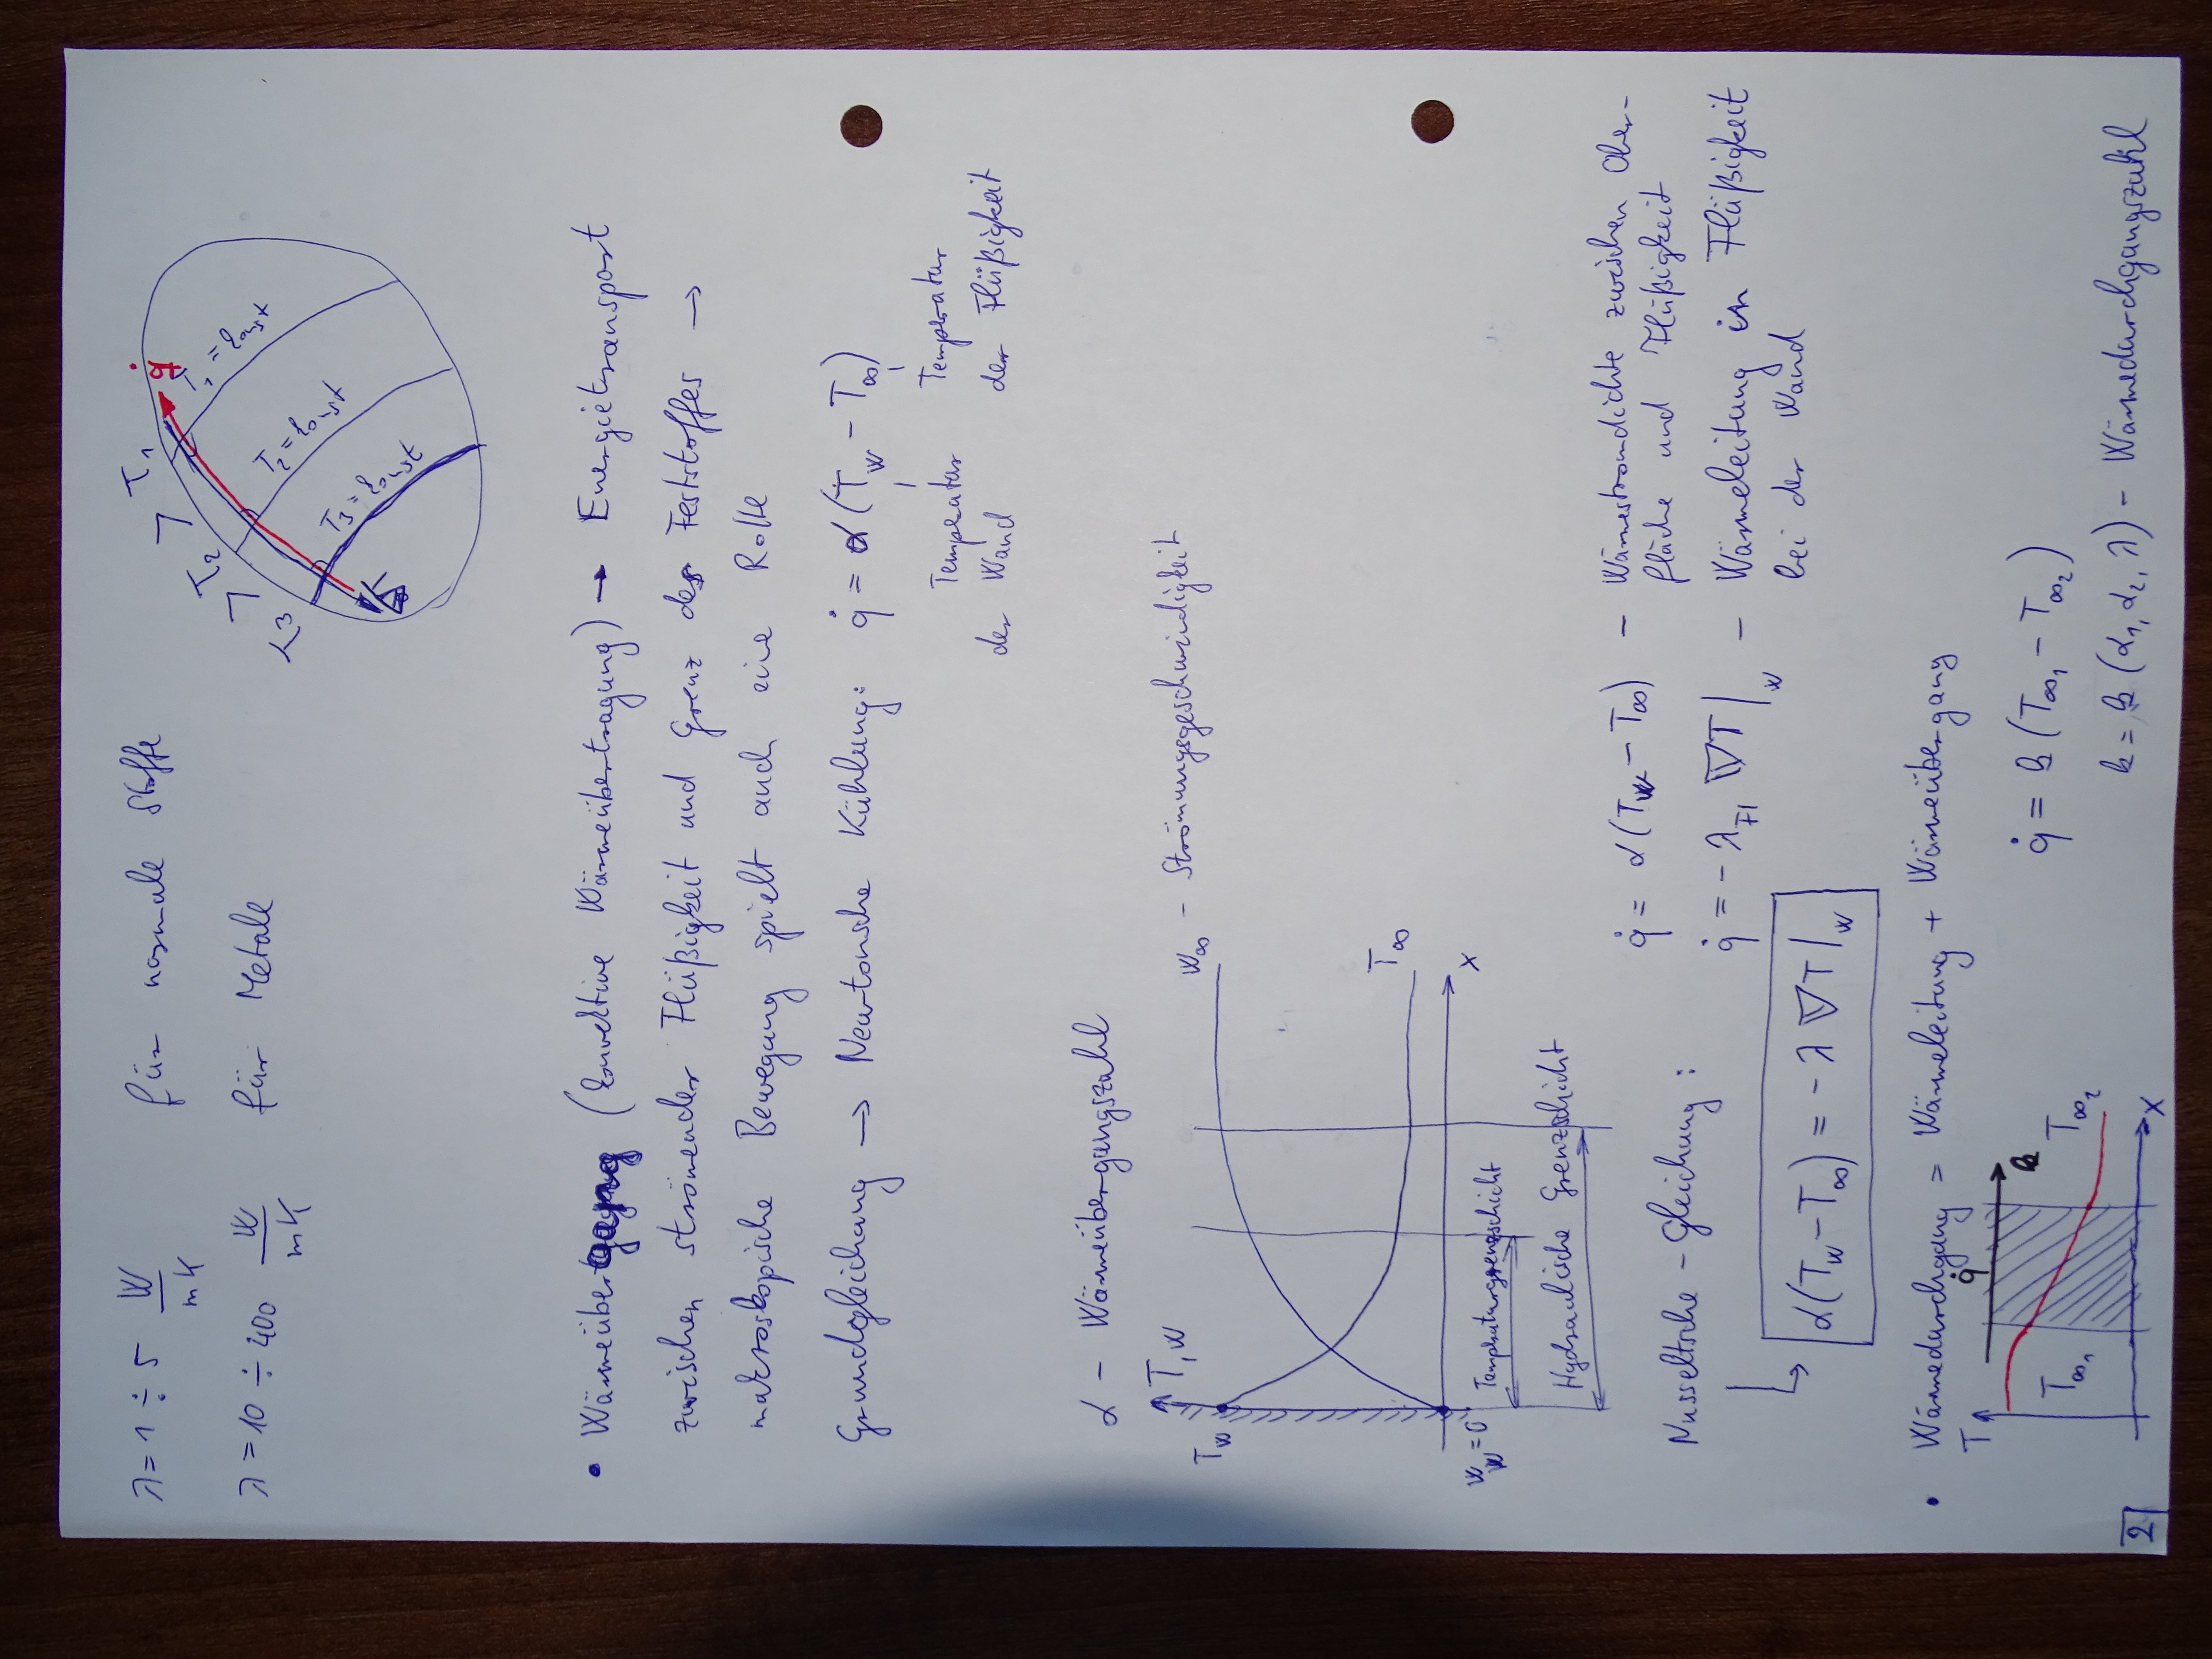 λ = 1 ÷ 5 W/mK für normale Stoffe
λ = 10 ÷ 400 W/mK für Metale
T₁ > T₂ > T₃
q̇
T₁ = konst
T₂ = konst
T₃ = konst
• Wärmeübergang (konvektive Wärmeübertragung) → Energietransport
zwischen strömender Flüßigkeit und Grenz des Feststoffes →
makroskopische Bewegung spielt auch eine Rolle
Grundgleichung → Newtonsche Kühlung: q̇ = α (T_W − T_∞)
Tempratur der Wand
Tempratur der Flüßigkeit
α – Wärmeübergangszahl
T, W
W_∞ – Strömungsgeschwindigkeit
T_W
T_∞
x
W_W = 0
Tempraturgrenzschicht
Hydraulische Grenzschicht
Nusseltsche – Gleichung:
q̇ = α (T_W − T_∞) – Wärmestromdichte zwischen Ober-
fläche und Flüßigkeit
q̇ = − λ_Fl ∇T|_W – Wärmeleitung in Flüßigkeit
bei der Wand
↳ α (T_W − T_∞) = − λ ∇T|_W
• Wärmedurchgang = Wärmeleitung + Wärmeübergang
T
q̇
k
T_∞1
T_∞2
x
q̇ = k (T_∞1 − T_∞2)
k = k (α₁, α₂, λ) – Wärmedurchgangszahl
2